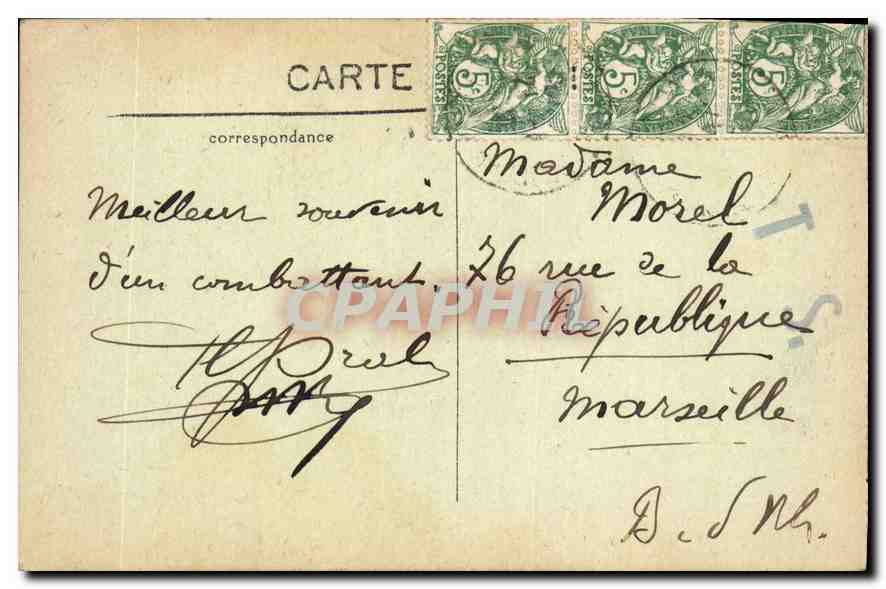 CARTE
correspondance
5c POSTES
5c POSTES
5c POSTES
Meilleur souvenir
d'un combattant.
Madame
Morel
76 rue de la
République
Marseille
B. d Rh.
T
S.
CPAPHIL